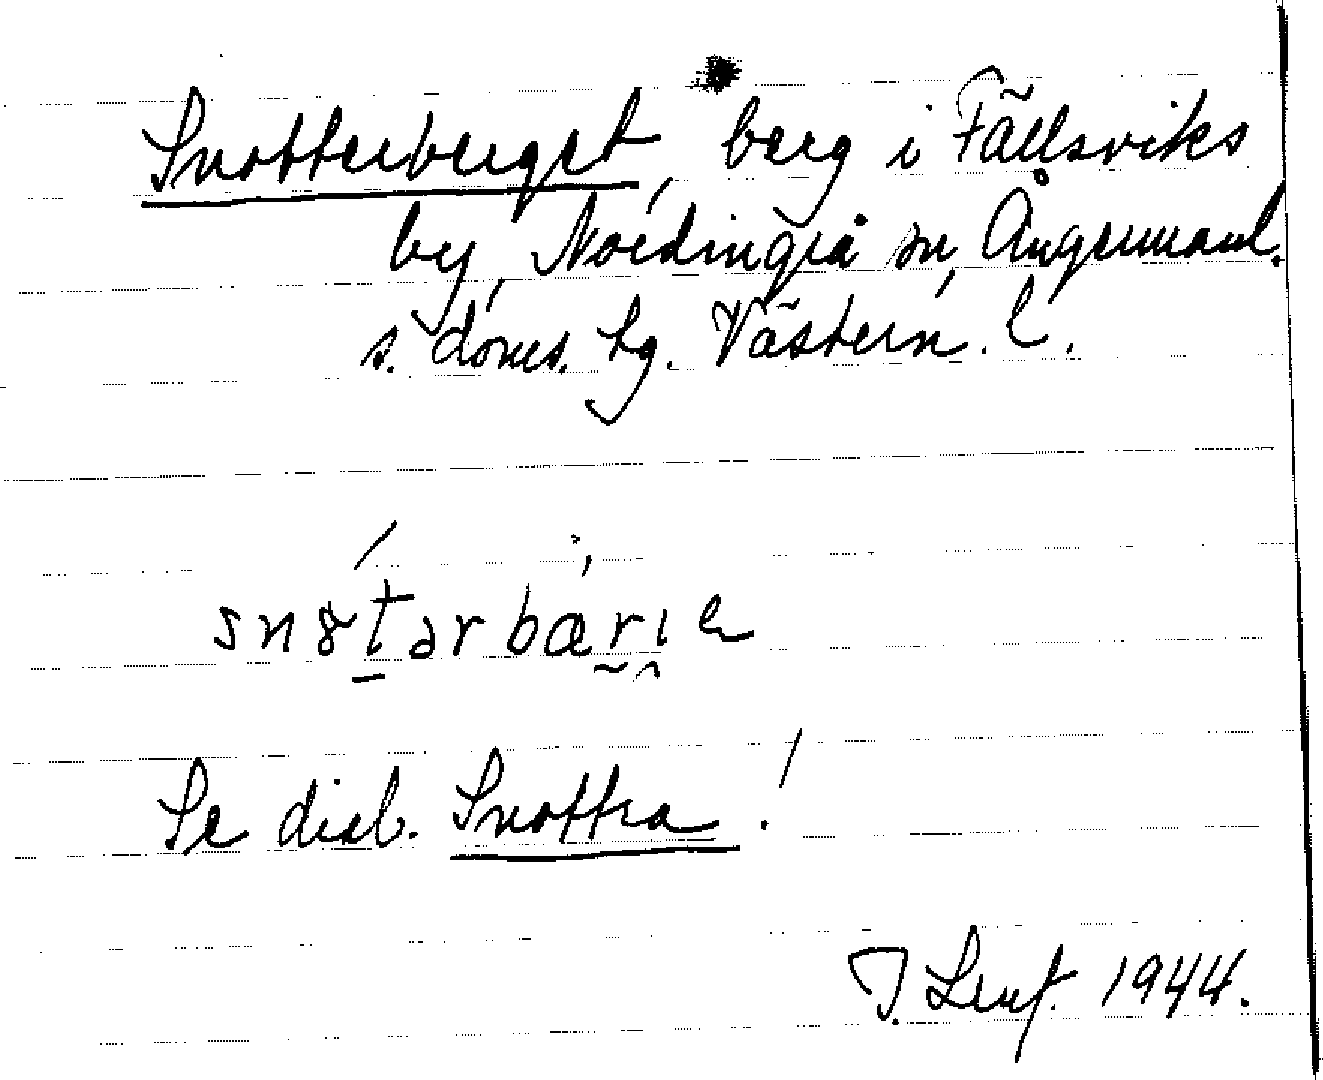 Snotterberget, berg i Fällsviks
by, Nordingrå sn, Ångermanl.
s. doms. tg. Västern. L.
snotərbærɪe
Se dial. Snottra!
J. 1944.